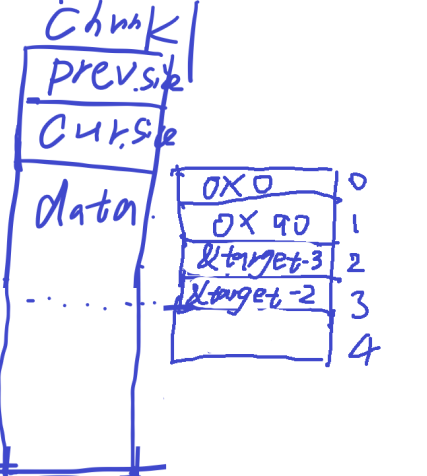 Chunk
prev.size
cur.size
data
0x0 0
0x90 1
&target-3 2
&target-2 3
4